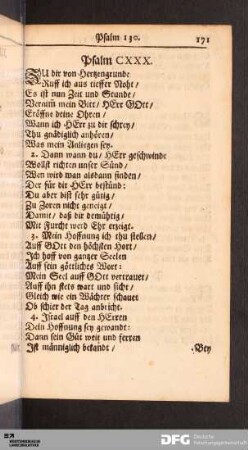 Psalm 130. 191
Psalm CXXX.
ZU dir von Hertzengrunde
Ruff ich aus tieffer Noht/
Es ist nun Zeit und Stunde/
Vernim̄ mein Bitt/ HErr GOtt/
Eröffne deine Ohren/
Wann ich HErr zu dir schrey/
Thu gnädiglich anhören/
Was mein Anliegen sey.
2. Dann wann du/ HErr geschwinde
Wollst richten unser Sünd/
Wen wird man alsdann finden/
Der für dir HErr bestünd:
Du aber bist sehr gütig/
Zu Zoren nicht geneigt/
Damit/ daß dir demühtig/
Mit Furcht werd Ehr erzeigt.
3. Mein Hoffnung ich thu stellen/
Auff GOtt den höchsten Hort/
Ich hoff von gantzer Seelen
Auff sein göttliches Wort:
Mein Seel auff GOtt vertrauet/
Auff ihn stets wart und sicht/
Gleich wie ein Wächter schauet
Ob schier der Tag anbricht.
4. Israel auff den HErren
Dein Hoffnung sey gewandt:
Dann sein Güt weit und ferren
Ist männiglich bekandt/
Bey
DFG Deutsche
Forschungsgemeinschaft